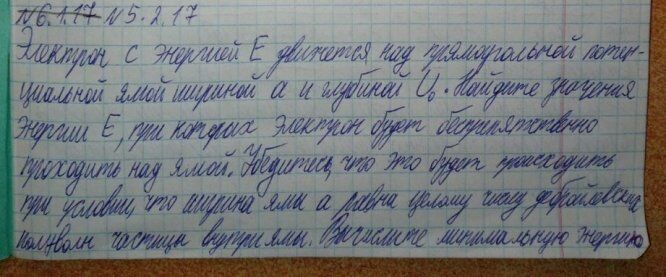 №6.1.17 №5.2.17
Электрон с энергией E движется над прямоугольной потен-
циальной ямой шириной a и глубиной U₀. Найдите значения
энергии E, при которых электрон будет беспрепятственно
проходить над ямой. Убедитесь, что это будет происходить
при условии, что ширина ямы a равна целому числу дебройлевских
полуволн частицы внутри ямы. Вычислите минимальную энергию